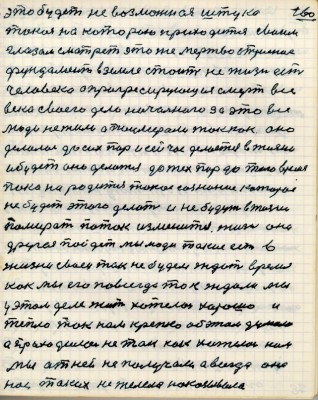 это будет не возможная штука 160
такая на которою приходится своим
глазам смотреть это же мертвое
фундамент в земле стоит не жизнь есть
человека а прогресирующая смерть все
века своего дела начального за это все
люди не жили а умирали так как оно
делалось до сих пор и сейчас делается в жизни
и будет оно делатся до тех пор до того время
пока не родится такое сознание которая
не будет этого делать и не будут в жизни
помирать поток изменится жизнь она
другая пойдет мы люди такие есть в
жизни своей так не будем ждать время
как мы его повсегда так ждали мы
у этом деле хотели хорошо и
тепло так нам крепко об этом
а приходилося не так как хотелося нам
мы от ней не получали а всегда она
нас таких не жалела наказывала